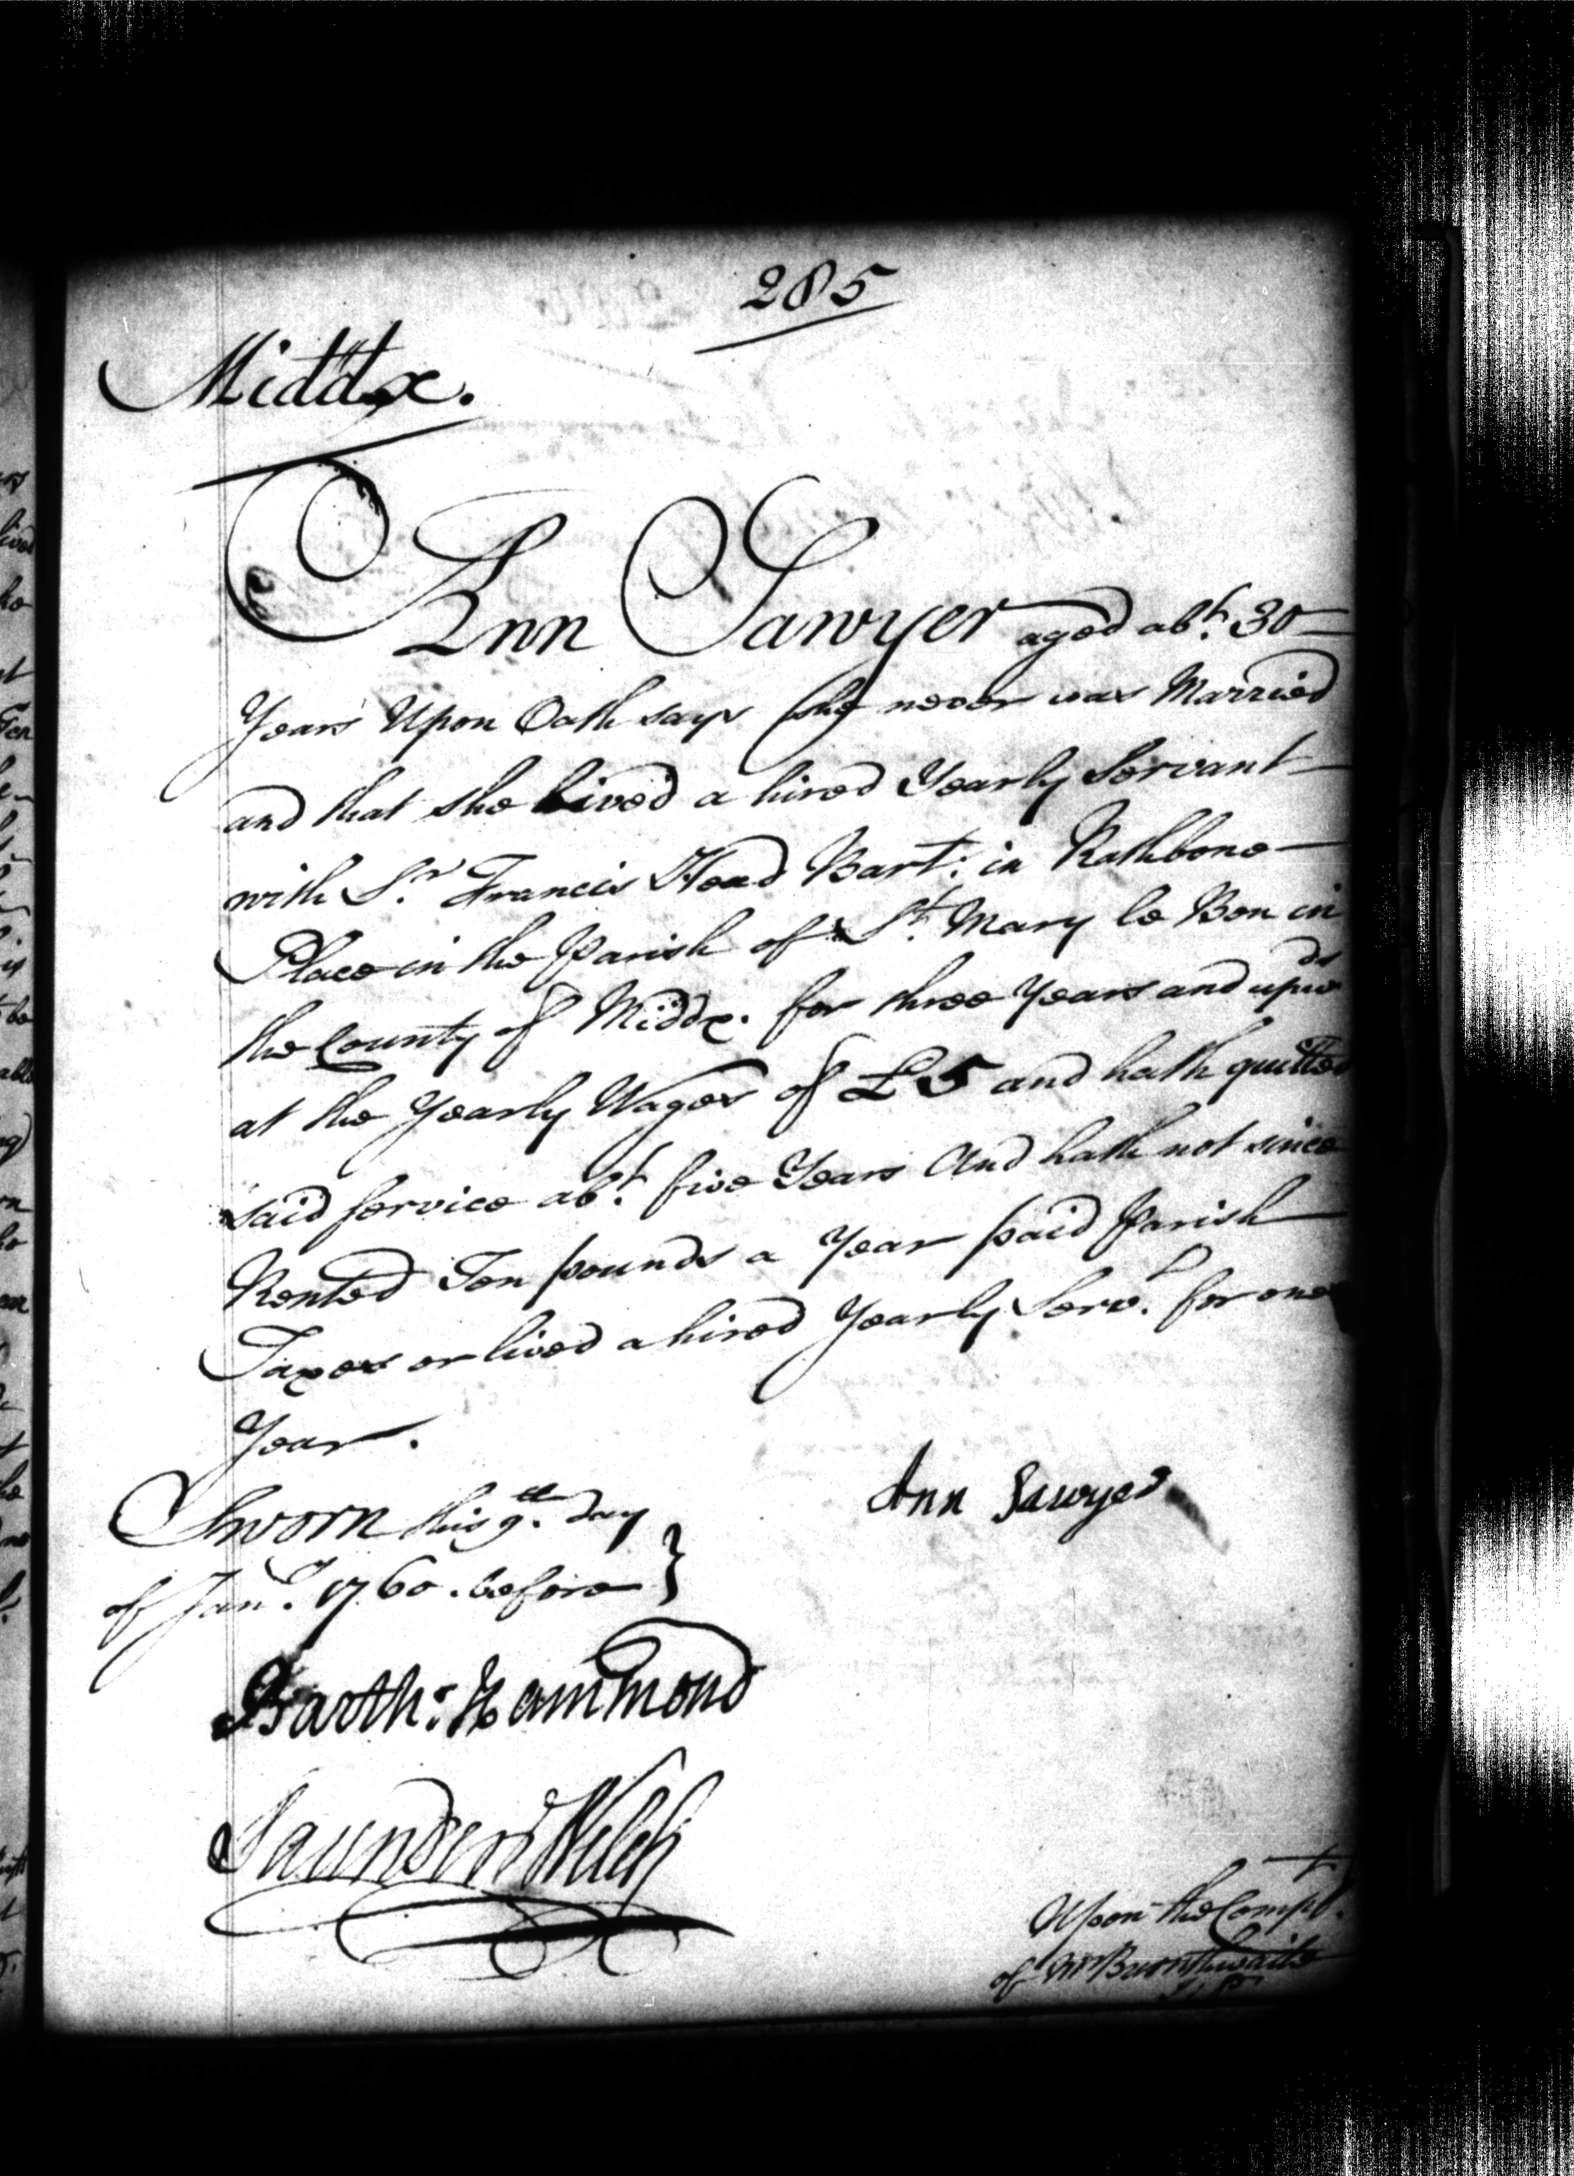 285
Middx.
Ann Sawyer aged abt. 30
Years Upon Oath says she never was Married
and that she lived a hired Yearly Servant
with Sr. Francis Head Bart: in Rathbone
Place in the Parish of St. Mary le Bon in
the County of Middx. for three Years and upwds
at the Yearly Wages of £5 and hath quitted
said service abt. five Years And hath not since
Rented Ten pounds a Year paid Parish
Taxes or lived a hired Yearly Servt. for one
Year.
Sworn this 9th. day
of Janry. 1760. before }
Ann Sawyer
Barthw: Hammond
Saunders Welch
Upon the Compt.
of Mr Burnthwaite